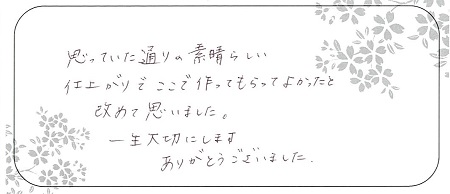 思っていた通りの素晴らしい
仕上がりでここで作ってもらってよかったと
改めて思いました。
一生大切にします
ありがとうございました.